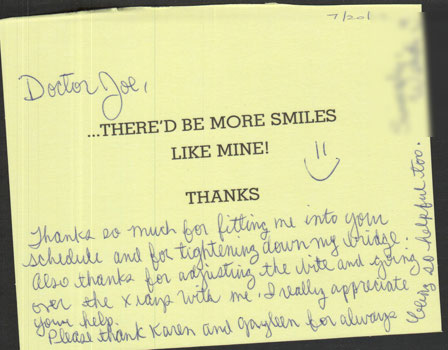 7/201
Doctor Joe,
...THERE'D BE MORE SMILES
LIKE MINE!
THANKS
Thanks so much for fitting me into your
schedule and for tightening down my bridge.
Also thanks for adjusting the bite and going
over the x rays with me. I really appreciate
your help.
Please thank Karen and Gayleen for always
being so helpful too.